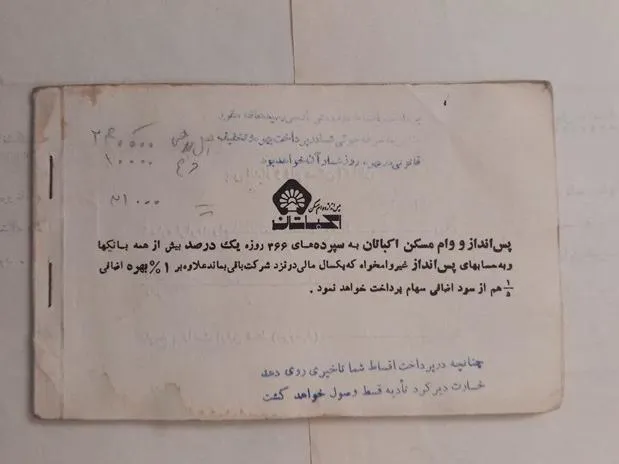 قانونی در مورد روز شمار آن خواهد بود
۱۰۰۰۰
۲۱۰۰۰
پس‌انداز و وام مسکن
اکباتان
پس‌انداز و وام مسکن اکباتان به سپرده‌های ۳۶۶ روزه یک درصد بیش از همه بانکها
و به حسابهای پس‌انداز غیر وامخواه که یکسال مالی در نزد شرکت باقی بماند علاوه بر ۱% بهره اضافی
۱/۵ هم از سود اضافی سهام پرداخت خواهد نمود .
چنانچه در پرداخت اقساط شما تاخیری روی دهد
خسارت دیرکرد تأدیه قسط وصول خواهد گشت